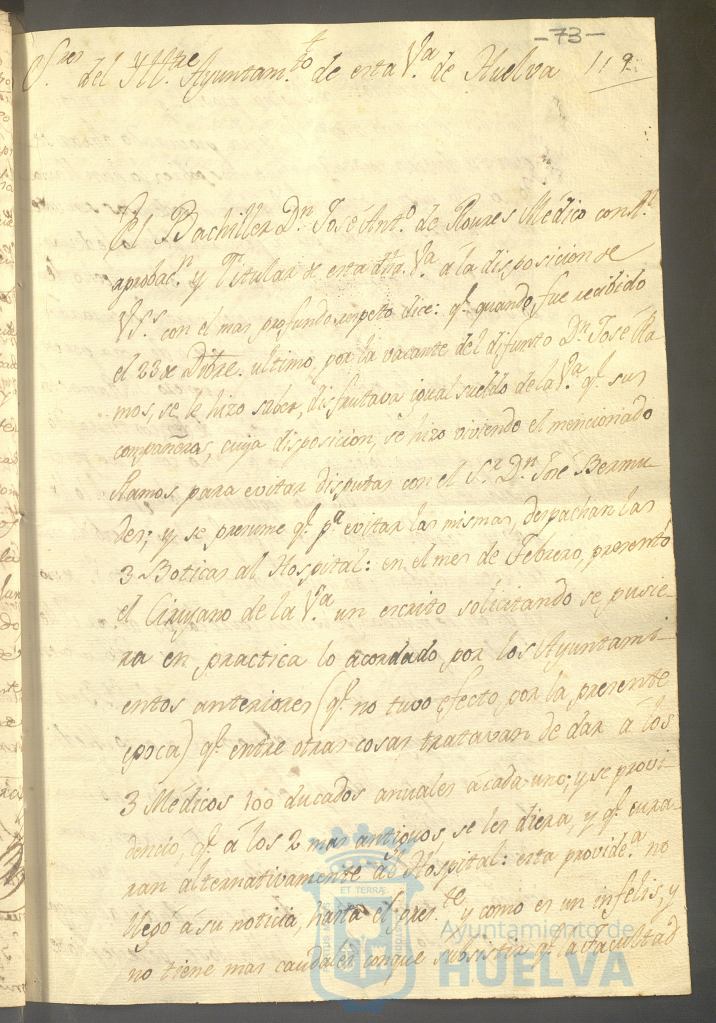 -73-
S.res del Yll.tre Ayuntam.to de esta V.a de Huelva 119
El Bachiller D.n José Ant.o de Flores Médico con R.l
aprobac.n y Titular de esta dha. V.a á la disposicion de
VSS. con el mas profundo respeto dice: q.e quando fue recibido
el 23 de Dibre. ultimo, por la vacante del difunto D.n José Ra
mos, se le hizo saber, disfrutava igual sueldo de la V.a q.e sus
compañeros, cuya disposicion, se hizo viviendo el mencionado
Ramos para evitar disputas con el S.r D.n José Bermu
des; y se presume q.e p.a evitar las mismas, despachan las
3 Boticas al Hospital: en el mes de Febrero, presentó
el Cirujano de la V.a un escrito solicitando se pusie
ra en practica lo acordado por los Ayuntami
entos anteriores (q.e no tuvo efecto por la presente
epoca) q.e entre otras cosas tratavan de dar á los
3 Médicos 100 ducados anuales á cada uno; y se provi
denció, q.e á los 2 mas antiguos se les diera, y q.e cura
ran alternativamente al Hospital: esta provide.a no
llegó á su noticia, hasta el pres.te y como es un infelis, y
no tiene mas caudales conque subsistir q.e la facultad
ET TERRÆ
Ayuntamiento de
HUELVA